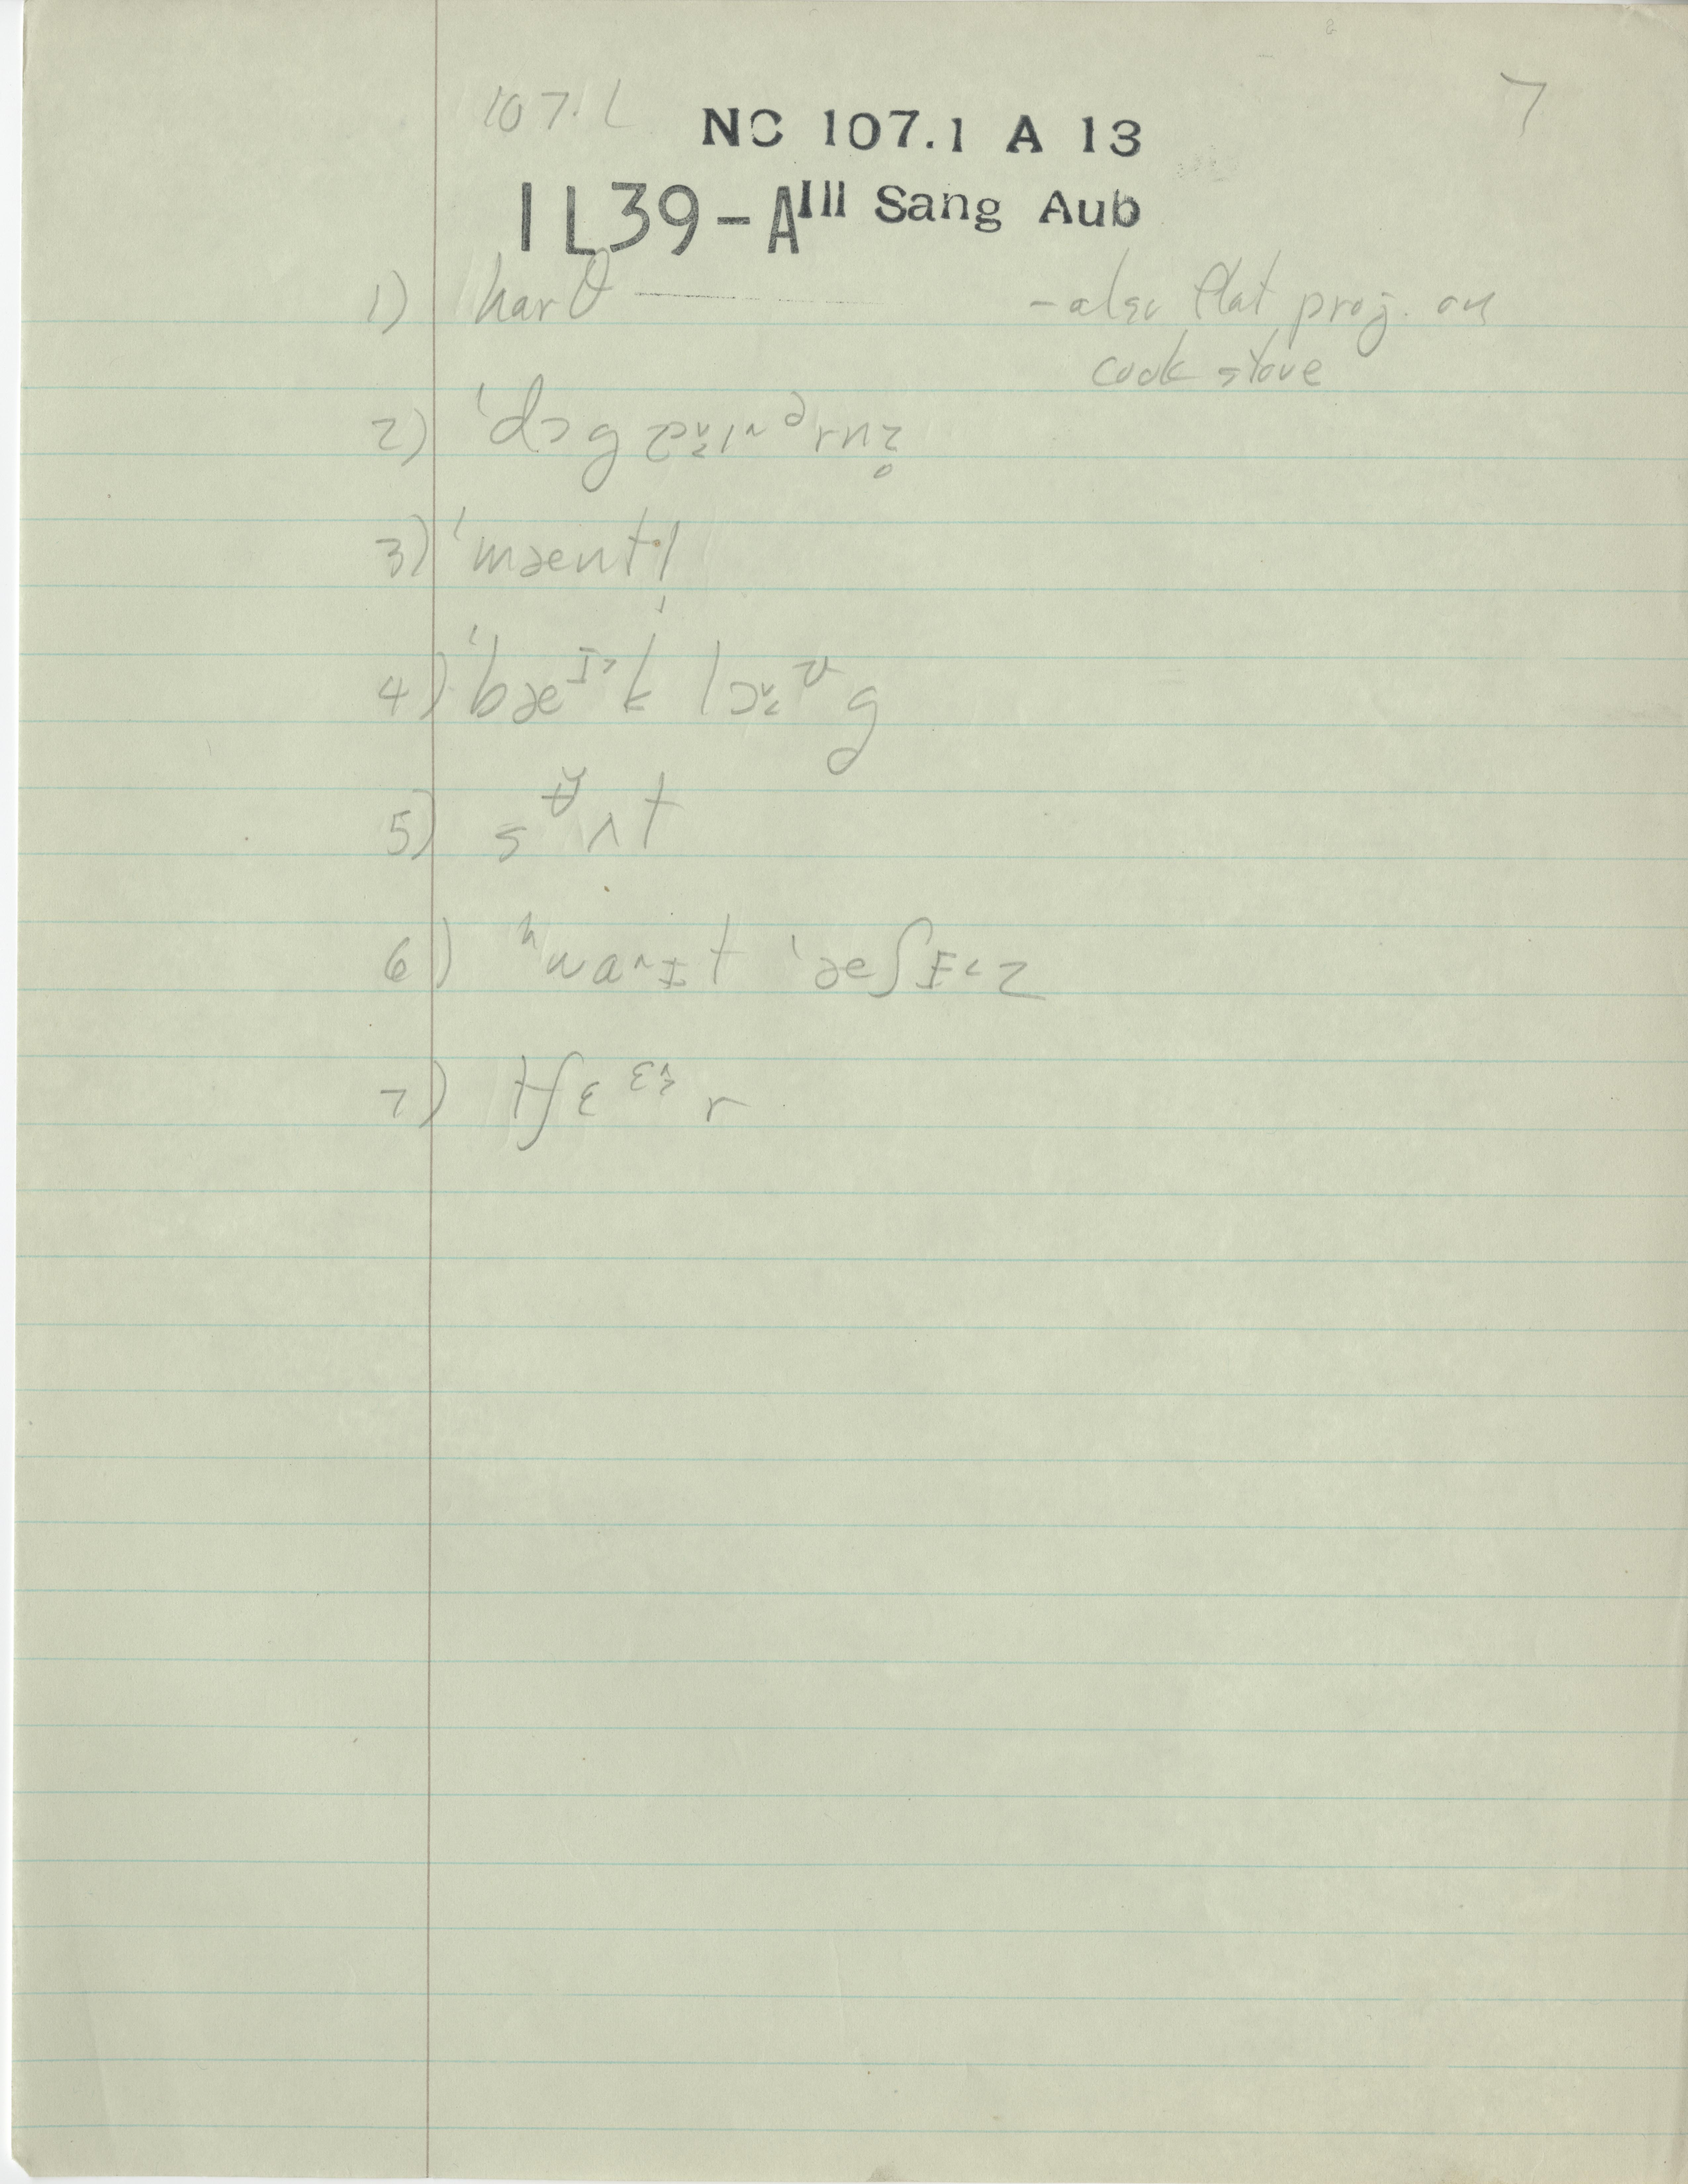 107.1 7
NC 107.1 A 13
IL39-A Ill Sang Aub
1) harθ — -also flat proj. on
cook stove
2)
3) ˈmæntl̩
4) ˈbæᴵ˃k lɔᶷg
5) s ʌt
6) ʰwaɪt ˈæʃɪ˂z
7) tʃɛ r